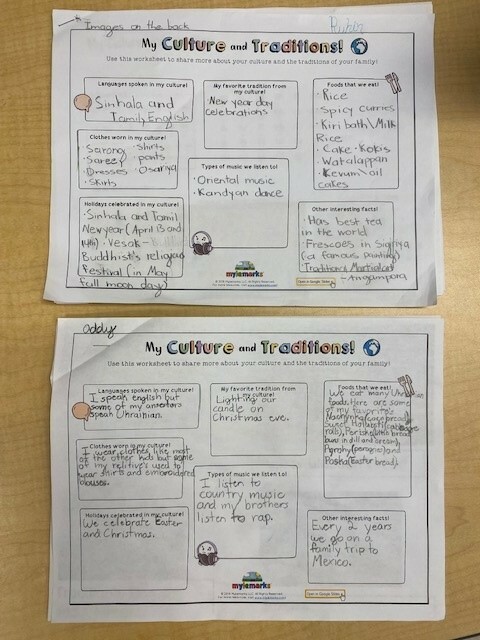 Images on the back
My Culture and Traditions!
Use this worksheet to share more about your culture and the traditions of your family!
Languages spoken in my culture!
Sinhala and
Tamil, English
My favorite tradition from
my culture!
New year day
celebrations
Foods that we eat!
· Rice
· Spicy curries
· Kiribath\Milk
Rice
· Cake · Kokis
· Watalappan
· Kevum\oil
cakes
Clothes worn in my culture!
· Sarong · shirts
· Sareey · pants
· Dresses · Osariya
· Skirts
Types of music we listen to!
· Oriental music
· Kandyan dance
Holidays celebrated in my culture!
· Sinhala and Tamil
Newyear (April 13 and
14th) · Vesak -
Buddhist's religious
festival (in May
full moon day)
Other interesting facts!
· Has best tea
in the world
· Frescoes in Sigiriya
(a famous painting)
Traditional Martial art
- Angampora
mylemarks
Open in Google Slides
Oddy
My Culture and Traditions!
Use this worksheet to share more about your culture and the traditions of your family!
Languages spoken in my culture!
I speak english but
some of my ancetors
speak Ukrainian.
My favorite tradition from
my culture!
Lighting our
candle on
Christmas eve.
Foods that we eat!
We eat many
foods. Here are some
of my favorite's
rolls),
(Easter bread).
Clothes worn in my culture!
I wear clothes like most
of the other kids but some
of my relitive's used to
wear shirts and embroidored
blouses.
Types of music we listen to!
I listen to
country music
and my brothers
listen to rap.
Holidays celebrated in my culture!
We celebrate Easter
and Christmas.
Other interesting facts!
Every 2 years
we go on a
family trip to
Mexico.
mylemarks
Open in Google Slides